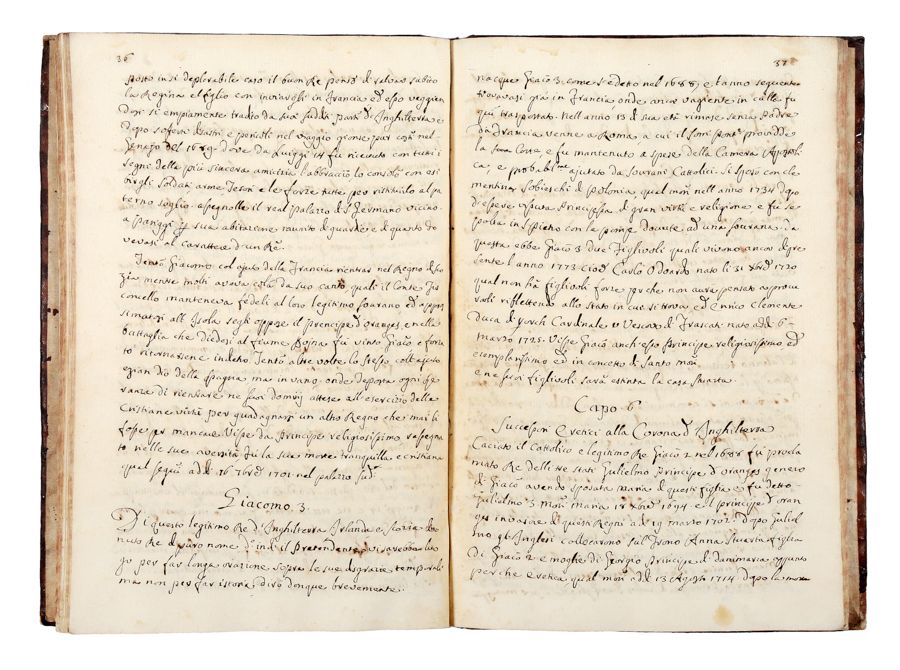 36
posto in sì deplorabile caso il buon Re pensò di salvare subito
la Regina e figlio con inviarli in Francia ed esso veggien
dosi sì empiamente tradito da suoi sudditi partì d'Inghilterra e
dopo sofersi disastri e pericoli nel viaggio gionse pur costì nel
Genajo del 1689. dove da Luiggi 14 fu ricevuto con tutti i
segni della più sincera amicizia l'abbracciò lo consolò con esi
birgli soldati arme tesori e le forze tutte per ristituirlo al pa
terno soglio assegnolle il real palazzo di S. Germano vicino
a Pariggi p sua abitazione munito di guardie e di quanto do
vevasi al carattere d'un Re.
Tentò Giacomo col ajuto della Francia rientrar nel Regno
mentre molti aveva colà da suo canto quali il Conte
manteneva fedeli al loro legitimo sovrano ed appros
simatosi all'Isola segli oppose il principe d'oranges, e nella
battaglia che diedesi al fiume Boina fu vinto Giacō e forza
to ritornarsene indietro. Tentò altre volte lo stesso coll'ajuto
ezian dio della Spagna ma in vano, onde deposta ogni spe
ranza di rientrare ne suoi dominj attese all'esercizio delle
Cristiane virtù per guadagnarsi un altro Regno che mai li
fosse per mancare. Visse da Principe religiosissimo rassegna
to nelle sue aversità fu la sua morte tranquilla e cristiana
qual seguì add. 16 7bre 1701 nel palazzo sud.
Giacomo. 3
Di questo legitimo Re d'Inghilterra Irlanda e Scozia
Re di puro nome d'indi il Pretendente vi sarebbe luo
go per far longa orazione sopra le sue disgrazie temporali
ma non per far istoria, dirò donque brevemente.
37
nacque Giacō 3 come s'è detto nel 1688, e l'anno seguente
ritrovavasi già in Francia onde ancor vagiente in culla fu
qui trasportato. Nell'anno 13 di sua età rimase senza Padre
da Francia venne a Roma, a cui il Som̄o Pont. providde
la sua Corte e fu mantenuto a spese della Camera Apostoli
ca, e probabilm̄te ajutato da sovrani Cattolici. Si sposò con cle
mentina Sobieschi di Polonia, qual morì nell'anno 1734 dopo
d'essere vissuta Principessa di gran virtù e religione e fu se
polta in S. Pietro con la pompa dovuta ad una sovrana. Da
questa ebbe Giacō 3 due Figlivoli quali vivono ancor di pre
sente l'anno 1773 cioè Carlo Odoardo nato li 31 Xbre 1720
qual non hà figlivoli forse perche non cura pensato a procu
rarli riflettendo allo stato in cui si trova ed Enrico Clemente
Duca di Yorch Cardinale e Vescovo di Frascati nato add. 6
marzo 1725. Visse Giacō anch'esso Principe religiosissimo ed
esemplarissimo ed in concetto di Santo morì
e ne suoi figlivoli sarà estinta la casa Stuarta.
Capo 6
Successori Eretici alla Corona d'Inghilterra
Caciato il Cattolico e legitimo Re Giacō 2 nel 1688 fu procla
mato Re delli tre stati Gulielmo Principe d'oranges genero
di Giacō avendo sposata Maria di questi figlia e fu detto
Gulielmo 3 morì Maria 28 Xbre 1694 e il principe d'oran
ges invasore di questi Regni add. 19 marzo 1702. dopo Guliel
mo gl'Inglesi collocarono sul Trono Anna Stuarta figlia
di Giacō 2 e moglie di Giorgio Principe di Danimarca appunto
perche eretica qual morì add. 13 Agosto 1714 dopo la morte